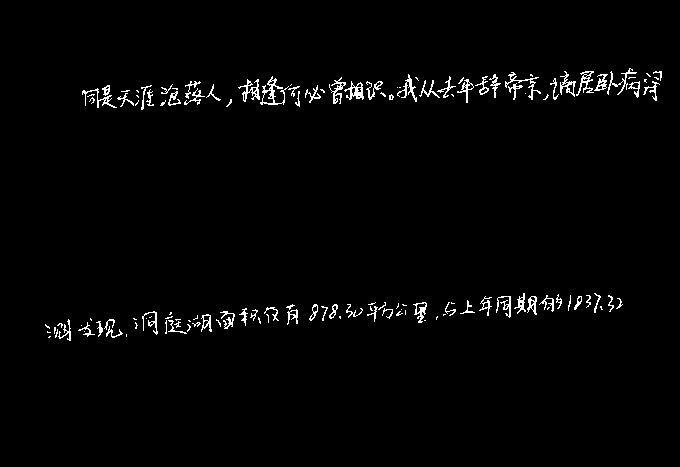 同是天涯沦落人，相逢何必曾相识。我从去年辞帝京，谪居卧病浔
测发现，洞庭湖面积仅有878.30平方公里，与上年同期的1837.32